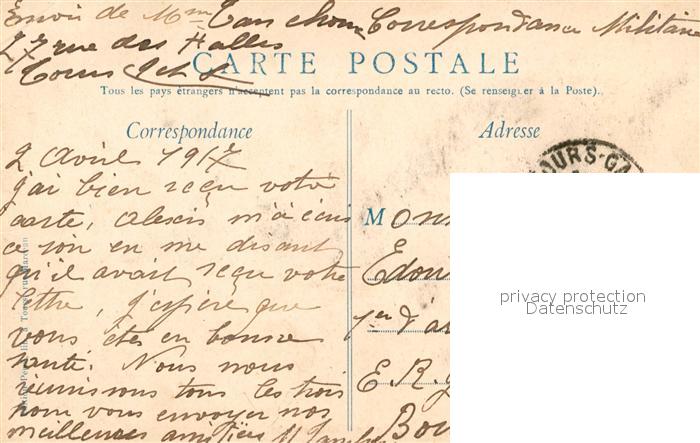 Envoi de Mme Correspondance Militaire
27 rue des Halles
Tours I et L
CARTE POSTALE
Tous les pays étrangers n'acceptent pas la correspondance au recto. (Se renseigner à la Poste).
Correspondance
Adresse
TOURS-GA
2 Avril 1917
j'ai bien reçu votre
carte, Alexis m'a écris
ce soir en me disant
qu'il avait reçu votre
lettre, j'espère que
vous êtes en bonne
santé. Nous nous
réunissons tous les trois
pour vous envoyer nos
meilleures amitiés M
Mons
Edou
1er d'a
E. R. g
Bou
privacy protection
Datenschutz